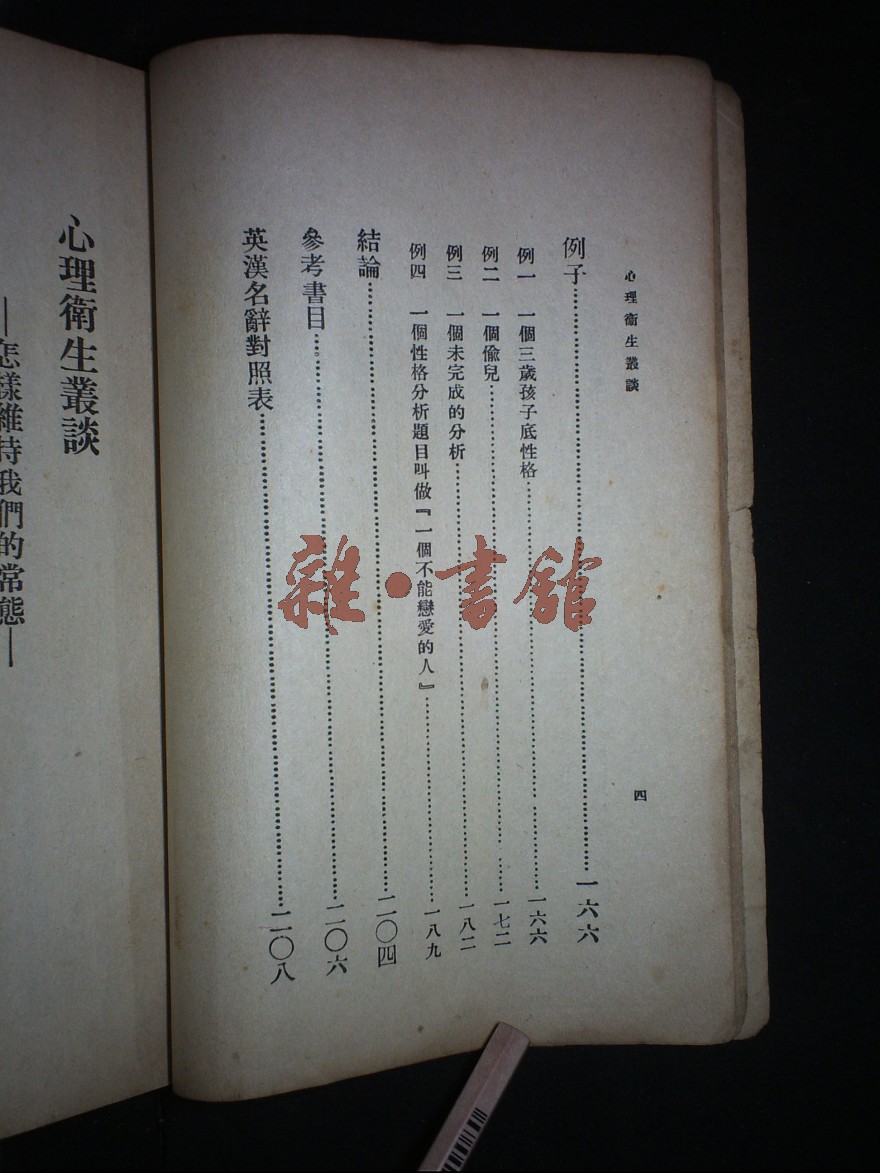 心理衛生叢談
四
例子……一六六
例一　一個三歲孩子底性格……一六六
例二　一個偷兒……一七二
例三　一個未完成的分析……一八二
例四　一個性格分析題目叫做『一個不能戀愛的人』……一八九
結論……二〇四
參考書目……二〇六
英漢名辭對照表……二〇八
心理衛生叢談
—怎樣維持我們的常態—
雜·書館